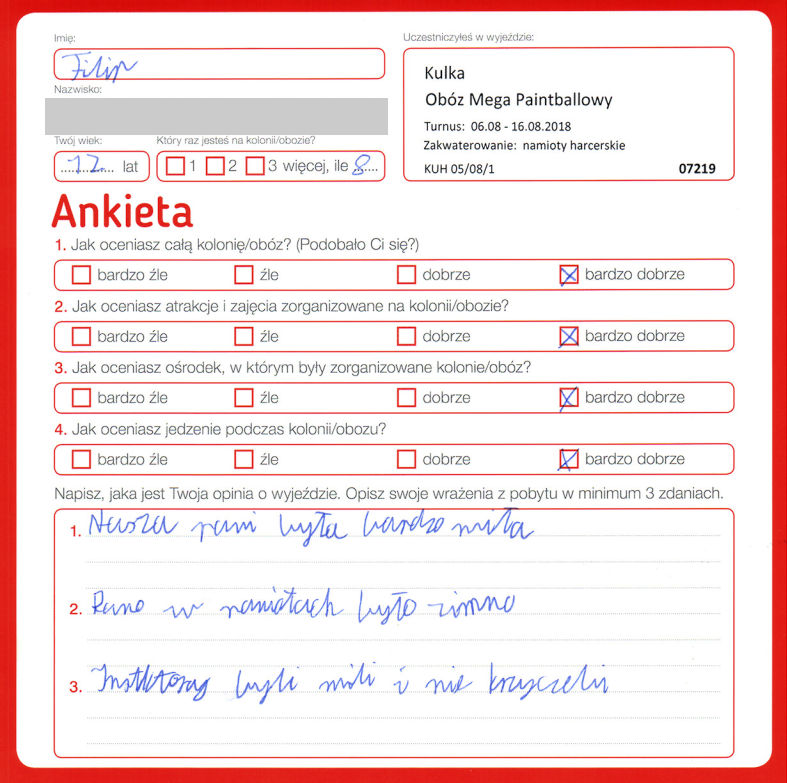 Imię:
Filip
Nazwisko:
Twój wiek:
12 lat
Który raz jesteś na kolonii/obozie?
1 2 3 więcej, ile 8
Uczestniczyłeś w wyjeździe:
Kulka
Obóz Mega Paintballowy
Turnus: 06.08 - 16.08.2018
Zakwaterowanie: namioty harcerskie
KUH 05/08/1 07219
Ankieta
1. Jak oceniasz całą kolonię/obóz? (Podobało Ci się?)
bardzo źle źle dobrze bardzo dobrze
2. Jak oceniasz atrakcje i zajęcia zorganizowane na kolonii/obozie?
bardzo źle źle dobrze bardzo dobrze
3. Jak oceniasz ośrodek, w którym były zorganizowane kolonie/obóz?
bardzo źle źle dobrze bardzo dobrze
4. Jak oceniasz jedzenie podczas kolonii/obozu?
bardzo źle źle dobrze bardzo dobrze
Napisz, jaka jest Twoja opinia o wyjeździe. Opisz swoje wrażenia z pobytu w minimum 3 zdaniach.
1. Nasza pani była bardzo miła
2. Rano w namiotach było zimno
3. byli mili i nie krzyczeli